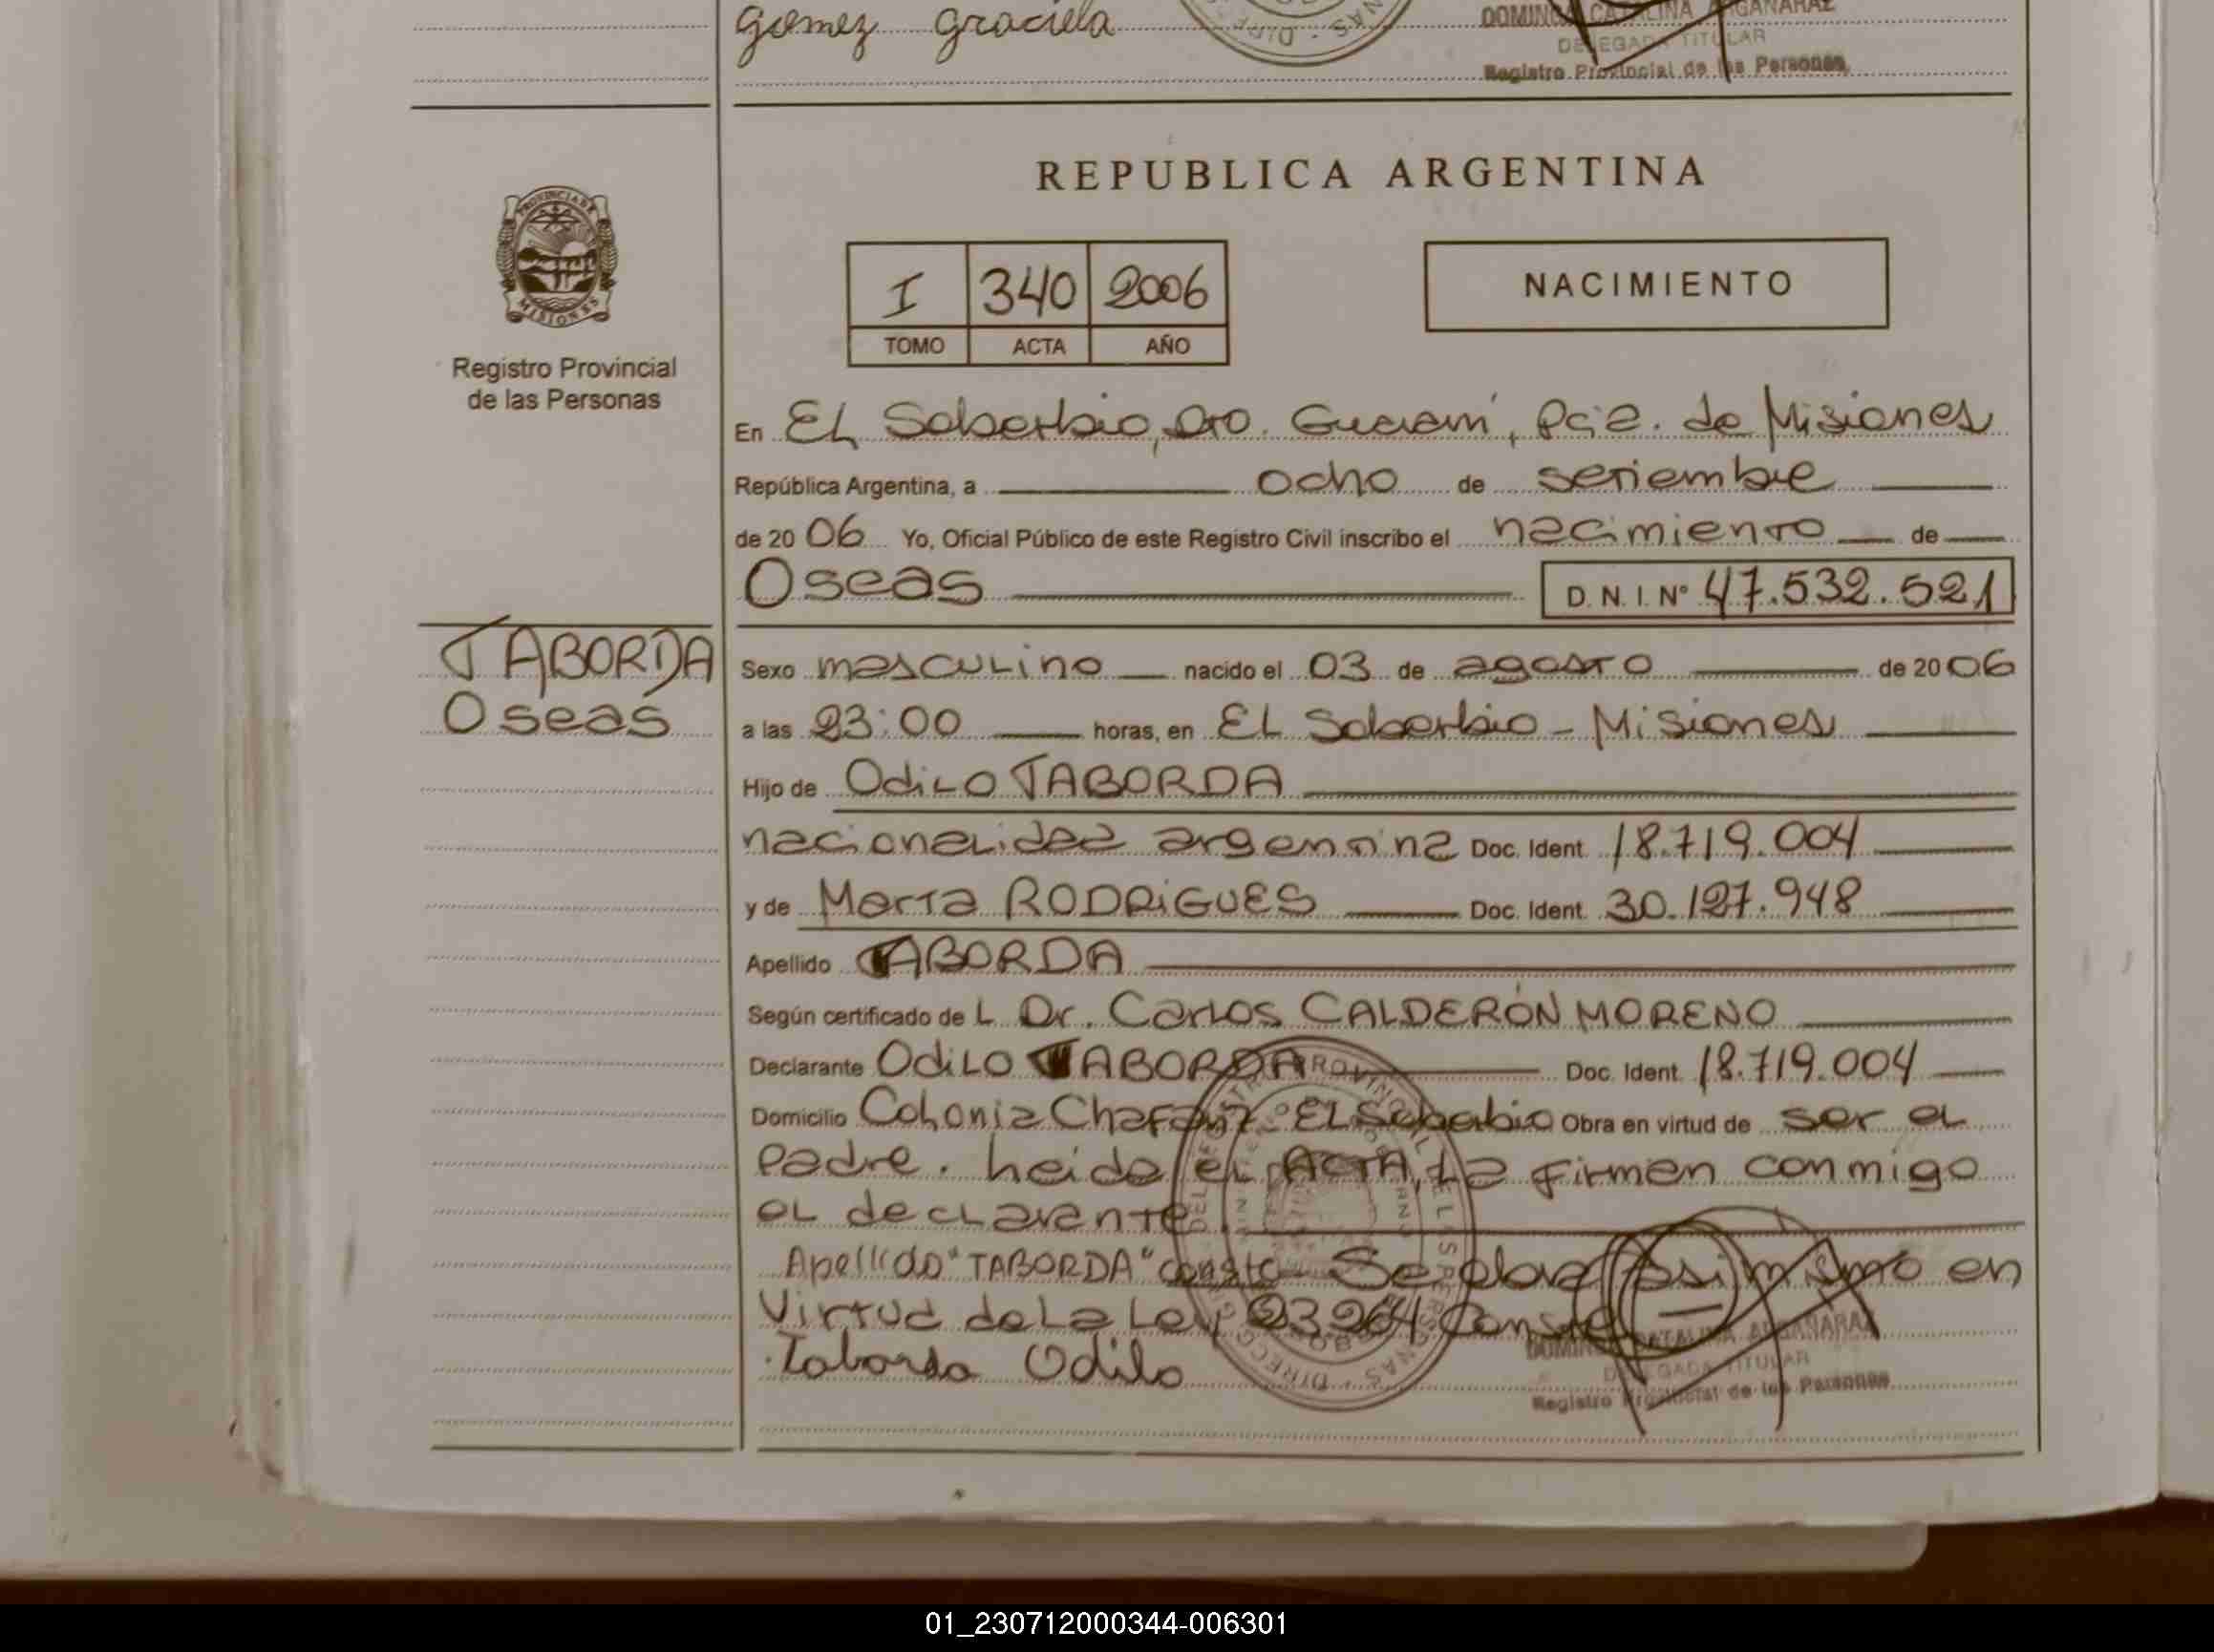 Gomez Graciela
DOMINGA CATALINA ARGAÑARAZ
DELEGADA TITULAR
Registro Provincial de las Personas
REPUBLICA ARGENTINA
PROVINCIA DE
MISIONES
Registro Provincial
de las Personas
I 340 2006
TOMO ACTA AÑO
NACIMIENTO
En EL Soberbio, Dto. Guaraní, Pcia. de Misiones
República Argentina, a ocho de setiembre
de 2006 Yo, Oficial Público de este Registro Civil inscribo el nacimiento de
Oseas D.N.I. Nº 47.532.521
TABORDA
Oseas
Sexo masculino nacido el 03 de agosto de 2006
a las 23:00 horas, en EL Soberbio - Misiones
Hijo de OdiLO TABORDA
nacionalidad argentina Doc. Ident. 18.719.004
y de Marta RODRIGUES Doc. Ident. 30.127.948
Apellido TABORDA
Según certificado deL Dr. Carlos CALDERÓN MORENO
Declarante OdiLO TABORDA Doc. Ident. 18.719.004
Domicilio Colonia Chafariz EL Soberbio Obra en virtud de ser el
Padre. Leida el ACTA, La firman conmigo
el declarante.
Apellido "TABORDA" consta Se obra asimismo en
Virtud de La Ley 23264 Conste
Taborda Odilo
DOMINGA CATALINA ARGAÑARAZ
DELEGADA TITULAR
Registro Provincial de las Personas
01_230712000344-006301